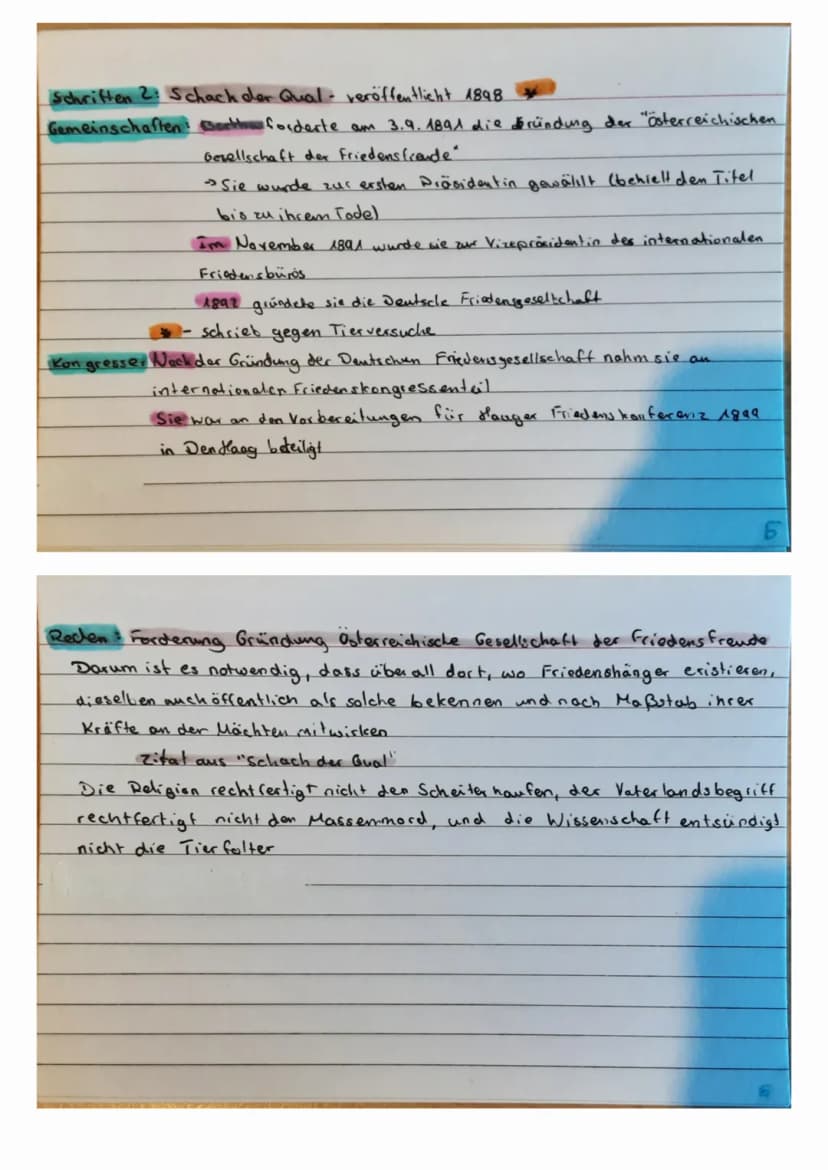 Schriften 2: Schach der Qual - veröffentlicht 1898 *
Gemeinschaften: forderte am 3.9.1891 die Gründung der "Österreichischen
Gesellschaft der Friedensfreude"
→ Sie wurde zur ersten Präsidentin gewählt (behielt den Titel
bis zu ihrem Tode)
Im November 1891 wurde sie zur Vizepräsidentin des internationalen
Friedensbüros
1892 gründete sie die Deutsche Friedensgesellschaft
* - schrieb gegen Tierversuche
Kongresse: Nach der Gründung der Deutschen Friedensgesellschaft nahm sie an
internationalen Friedenskongressen teil
Sie war an den Vorbereitungen für Haager Friedenskonferenz 1899
in Den Haag beteiligt
5
Reden: Forderung Gründung Österreichische Gesellschaft der Friedensfreude
Darum ist es notwendig, dass überall dort, wo Friedenshänger existieren,
dieselben auch öffentlich als solche bekennen und nach Maßstab ihrer
Kräfte an der Mächten mitwirken
Zitat aus "Schach der Qual"
Die Religion rechtfertigt nicht den Scheiterhaufen, der Vaterlandsbegriff
rechtfertigt nicht den Massenmord, und die Wissenschaft entsündigt
nicht die Tierfolter
6